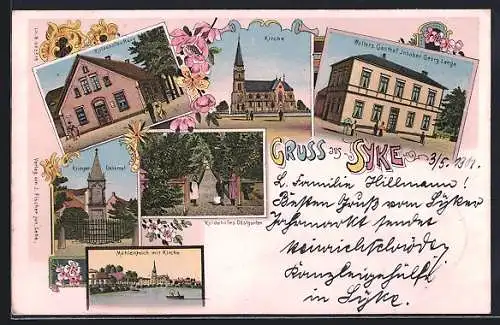 Kirche
Wolters Gasthof Inhaber Georg Lange
GRUSS aus SYKE
3/5.
Krieger Denkmal
Mühlenteich mit Kirche
Verlag von J. Fischer jun.
L. Familie Hillmann!
Besten Gruß vom Syker
Jahrmarkt sendet
Heinrich Schröder,
Kanzleigehülfe
in Syke.